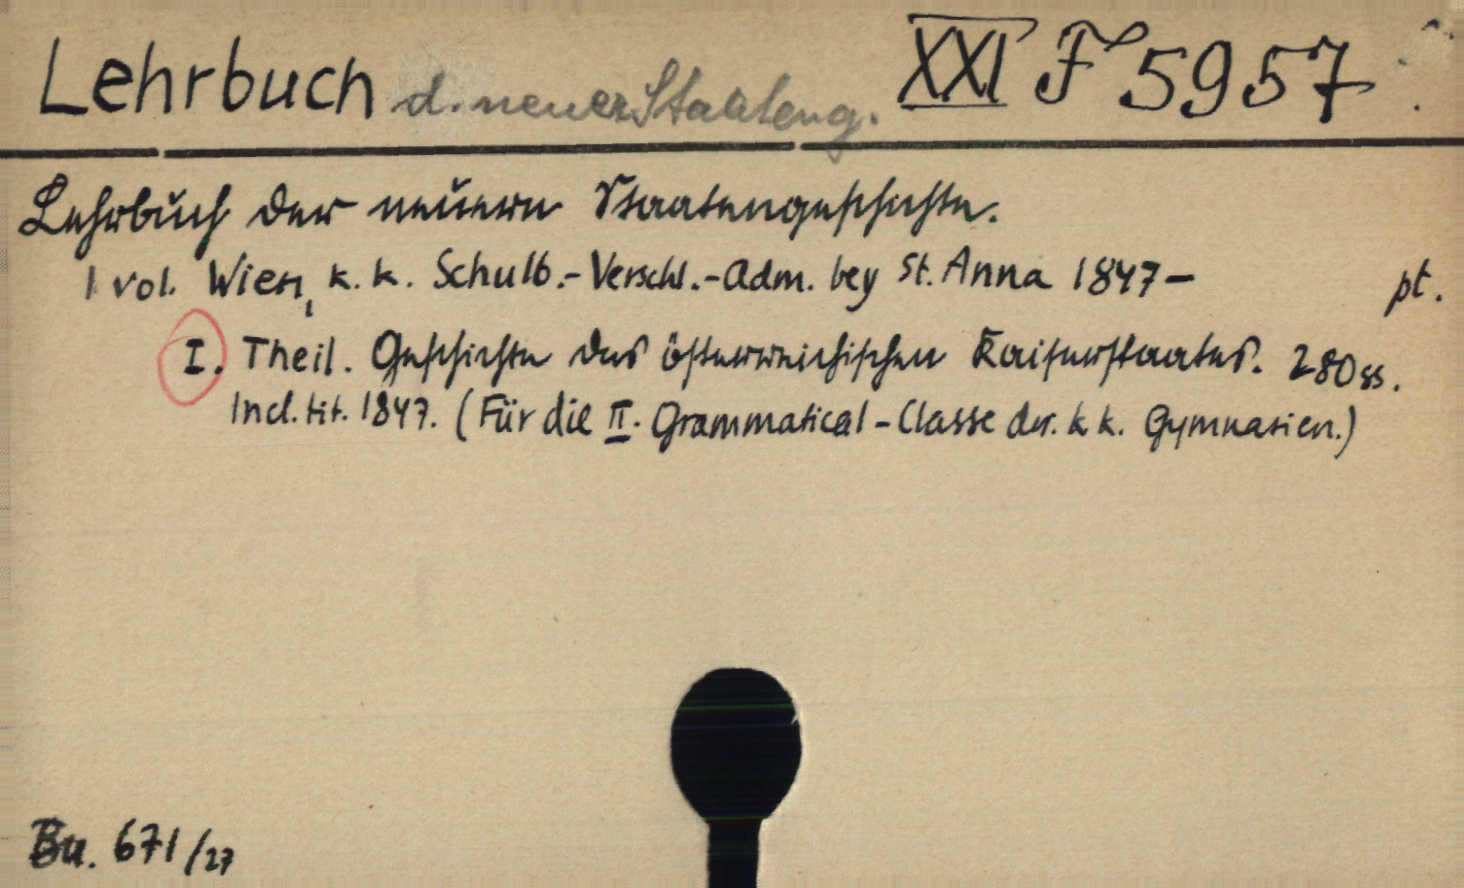 Lehrbuch d. neuer Staateng. XXI F 5957
Lehrbuch der neuern Staatengeschichte.
1 vol. Wien, k. k. Schulb.-Verschl.-Adm. bey St. Anna 1847- pt.
I. Theil. Geschichte des österreichischen Kaiserstaates. 280 ss.
Incl. tit. 1847. (Für die II. Grammatical-Classe der. k k. Gymnasien.)
Bu. 671/27